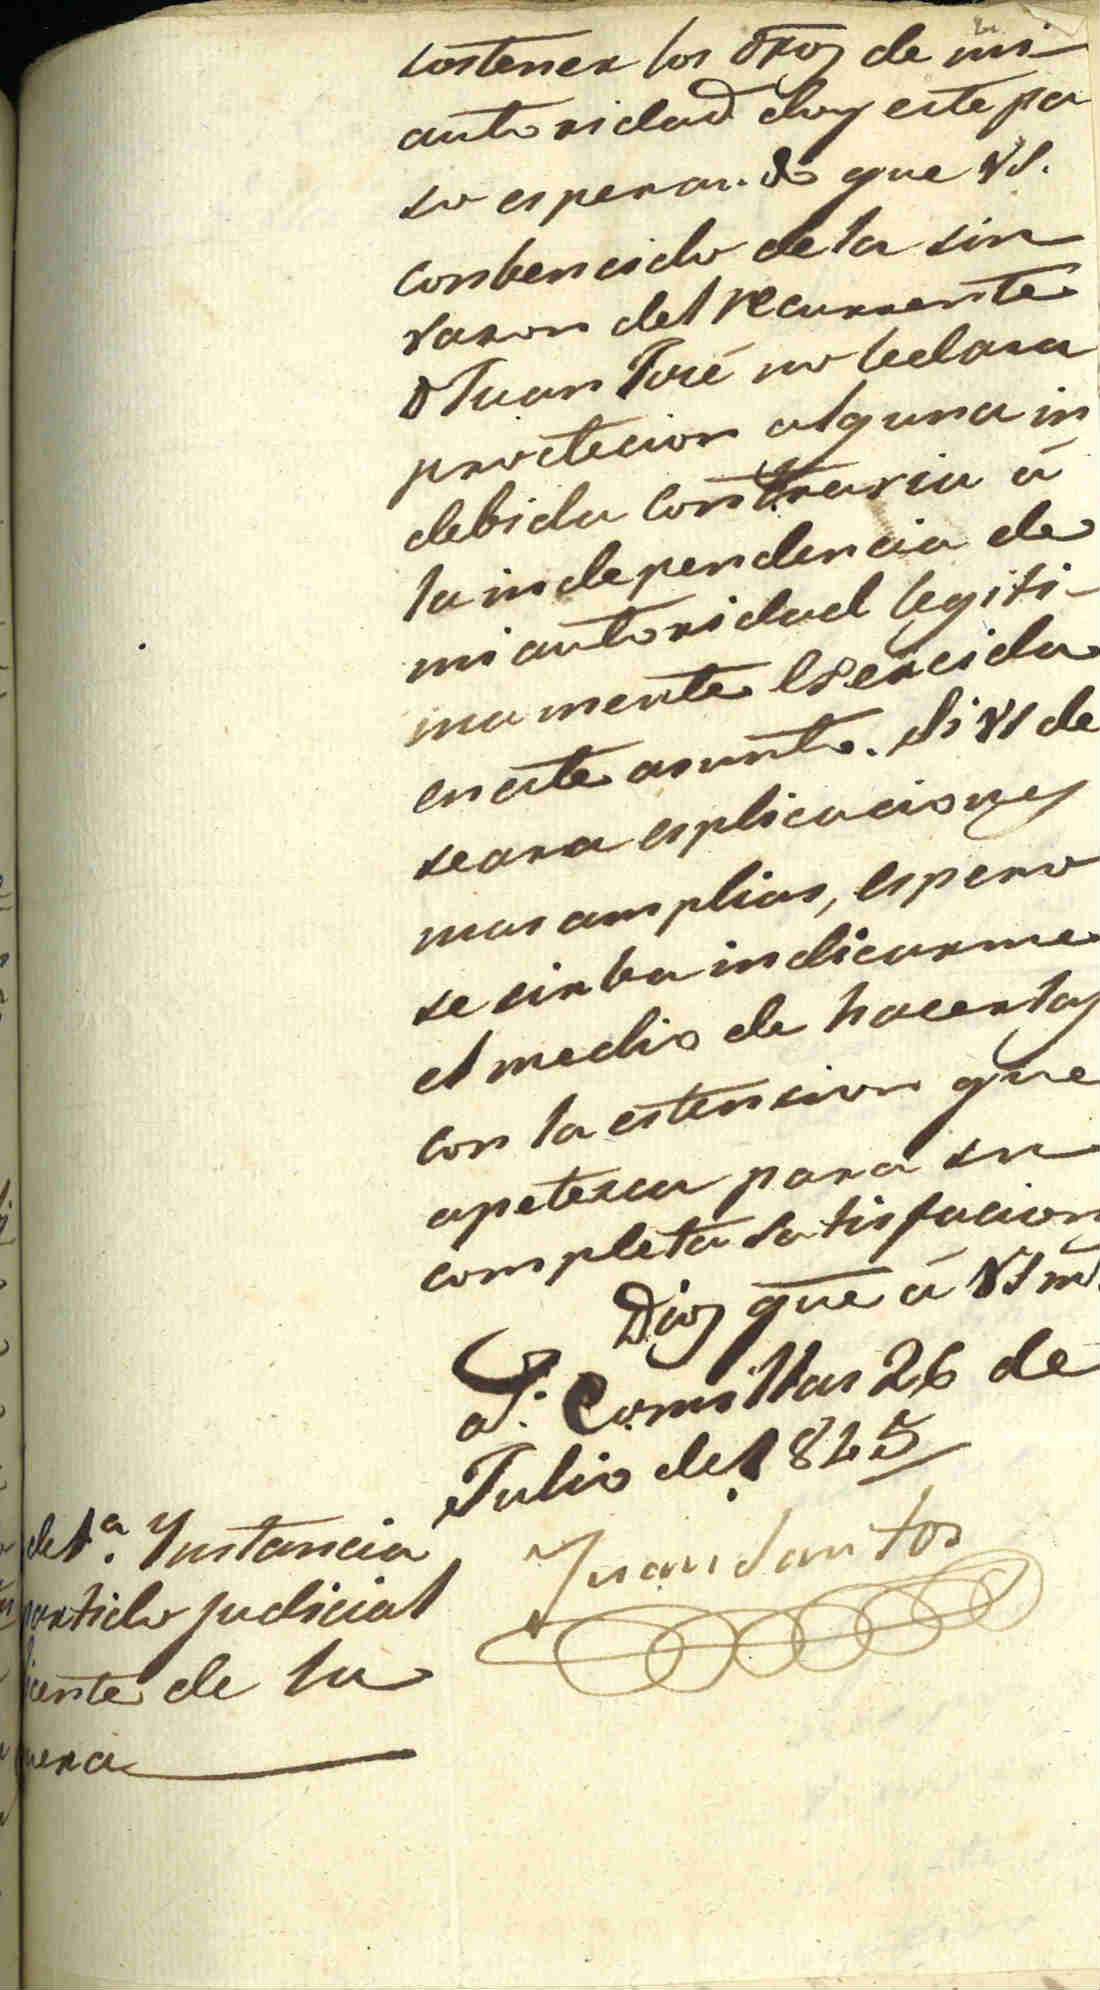 sostener los dros de mi
autoridad doy este pa
so esperando que VS.
conbencido de la sin
razon del recurrente
D Juan José no le dara
proctecion alguna in
debida contraria á
la independencia de
mi autoridad legiti-
mamente exercida
en este asunto. Si VS de
seara esplicaciones
mas amplias, espero
se sirba indicarme
el medio de hacerlas
con la estension que
apetesca para su
completa satisfacion
Dios gue á VS m.
a.s Comillas 26 de
Julio de 1845
Juan Santos
de 1.ª Ynstancia
partido judicial
icente de la
uera